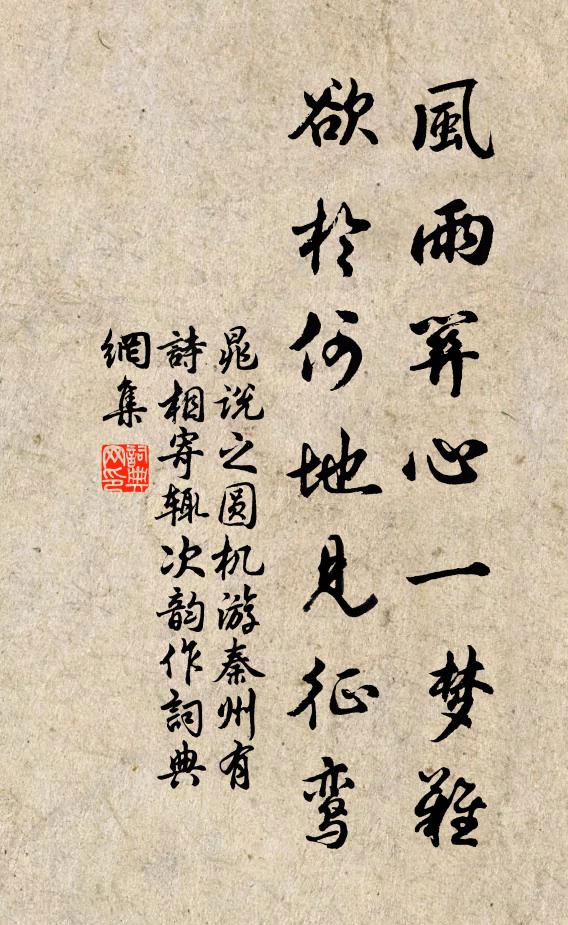 風雨関心一梦難
欲於何地見征鸾
晁说之圆机游秦州有
詩相寄辄次韵作詞典
網集
詞典網印